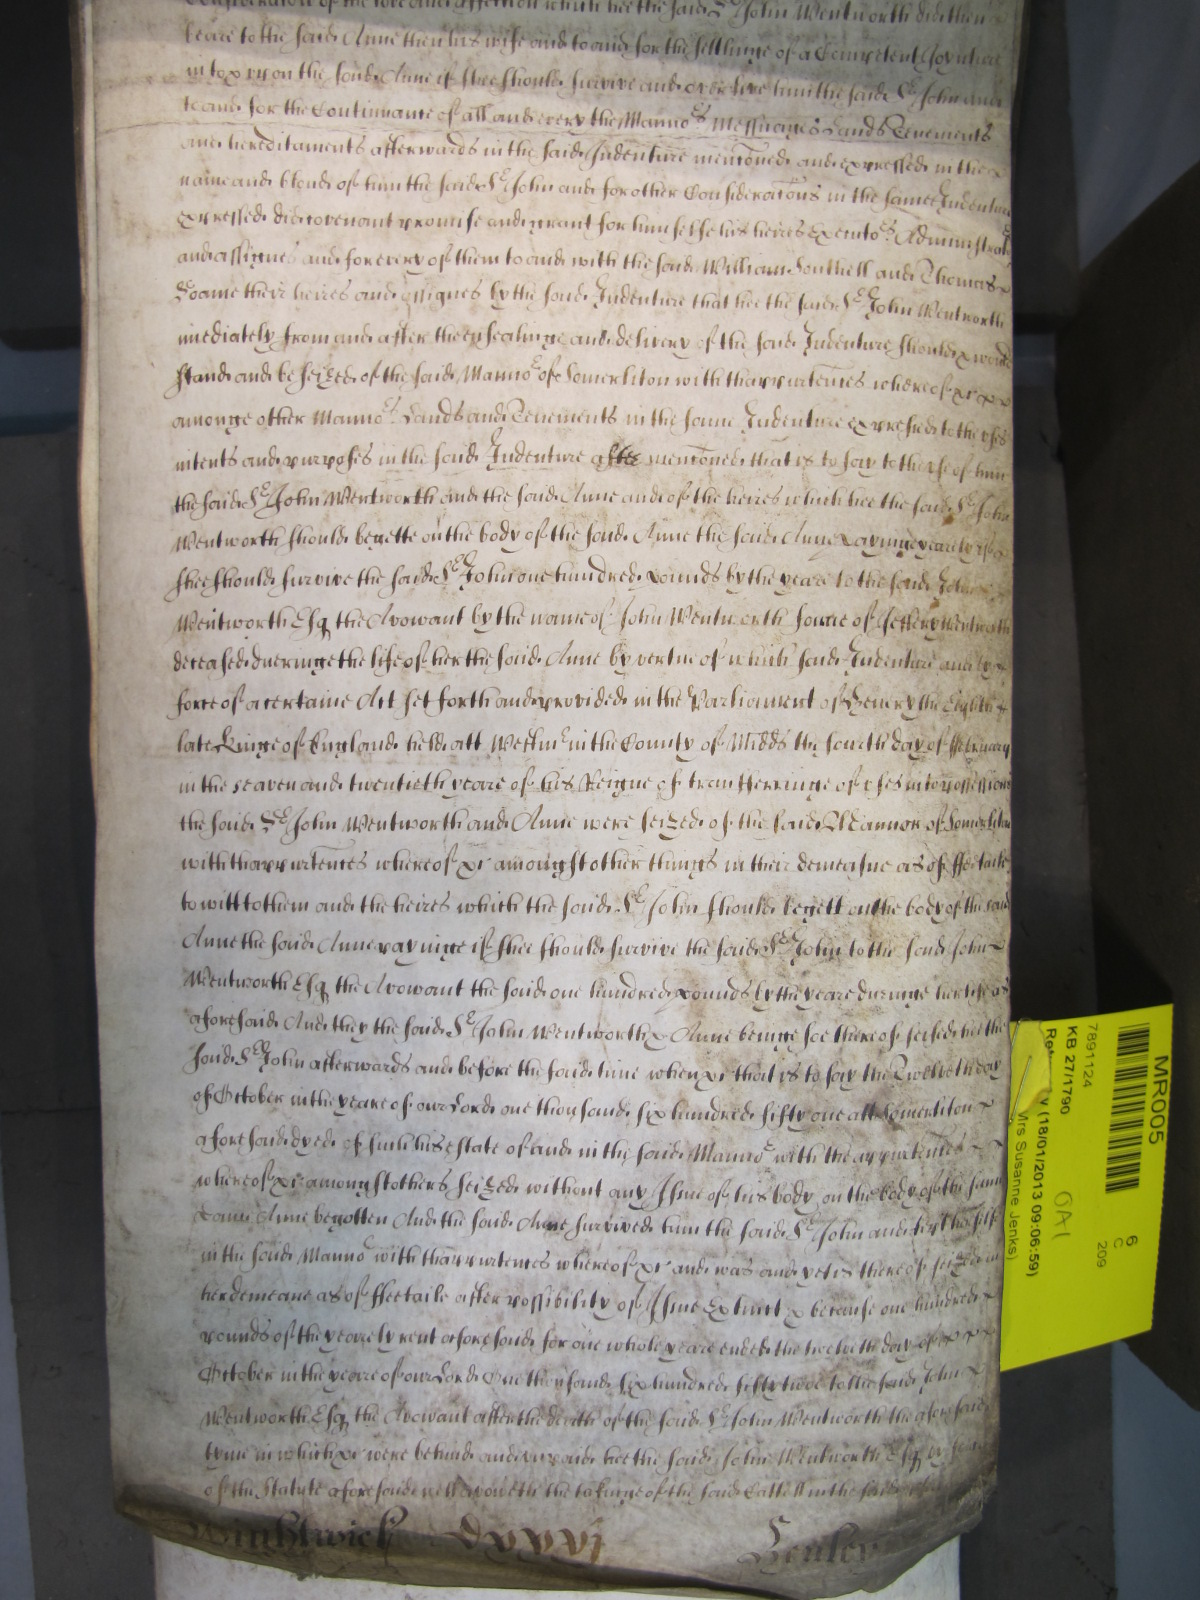 Consideration of the love and affection which hee the said Sr John Wentworth did then
beare to the said Anne then his wife and to and for the setlinge of a Competent Joynture
in to & uppon the said Anne if shee should survive and overlive him the said Sr John and
to and for the Continuance of all and every the Manno.rs Messuages Lands Tenements
and hereditaments afterwards in the said Indenture mencõned and expressed in the
name and bloud of him the said Sr John and for other Consideracõns in the same Indenture
expressed did covenant promise and graunt for himselfe his heires Executo.rs Administrato.rs
and assignes and for every of them to and with the said William Southell and Thomas
Soame their heires and assignes by the said Indenture that hee the said Sr John Wentworth
imediately from and after the ensealinge and delivery of the said Indenture should & would
stand and be seized of the said Manno.r of Somerliton with thappurtences whereof &c
amonge other Manno.rs Lands and Tenements in the same Indenture expressed to the uses
intents and purposes in the said Indenture after mencõned that is to say to the use of him
the said Sr John Wentworth and the said Anne and of the heires which hee the said Sr John
Wentworth should begette on the body of the said Anne the said Anne payinge yearely if
shee should survive the said Sr John one hundred pounds by the yeare to the said John
Wentworth Esq the Avowant by the name of John Wentworth sonne of Jeffery Wentworth
deceased dueringe the life of her the said Anne by vertue of which said Indenture and by
force of a certaine Act set forth and provided in the Parliament of Henery the Eighth
late Kinge of England held att Westm.r in the County of Midds the fourth day of ffebruary
in the seaven and twentieth yeare of his Reigne of transferringe of uses into possession
the said Sr John Wentworth and Anne were seized of the said Mannor of Somerliton
with thappurtences whereof &c amongst other things in their demeasne as of ffee taile
to witt to them and the heires which the said Sr John should begett on the body of the said
Anne the said Anne payinge if shee should survive the said Sr John to the said John
Wentworth Esq the Avowant the said one hundred pounds by the yeare duringe her life as
aforesaid And they the said Sr John Wentworth & Anne beinge soe thereof seised hee the
said Sr John afterwards and before the said time when &c that is to say the Twelveth day
of October in the yeare of our Lord one thousand six hundred fifty one att Somerliton
aforesaid dyed of such his estate of and in the said Manno.r with the appurtences
whereof &c amongst others seized without any Issue of his body on the body of the same
Dame Anne begotten And the said Anne survived him the said Sr John and held herself
in the said Manno.r with thappurtences whereof &c and was and yet is thereof seized in
her demeane as of ffee taile after possibility of Issue Extinct & because one hundred
pounds of the yearely rent aforesaid for one whole yeare ended the twelveth day of
October in the yeare of our Lord One thousand six hundred fifty two to the said John
Wentworth Esq the Avowant after the death of the said Sr John Wentworth the aforesaid
tyme in which &c were behind and unpaid hee the said John Wentworth Esq by force
of the Statute aforesaid well avoweth the takinge of the said Cattell in the said
Wightwick dxxxvi Henley
MR005
7891124
KB 27/1790
6
C
209
(18/01/2013 09:06:59)
Mrs Susanne Jenks)